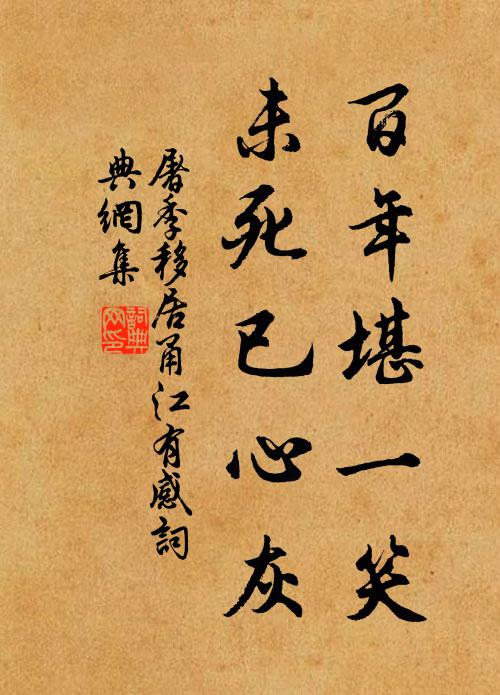 百年堪一笑
未死已心灰
屠季移居甬江有感詞
典網集
詞典網印